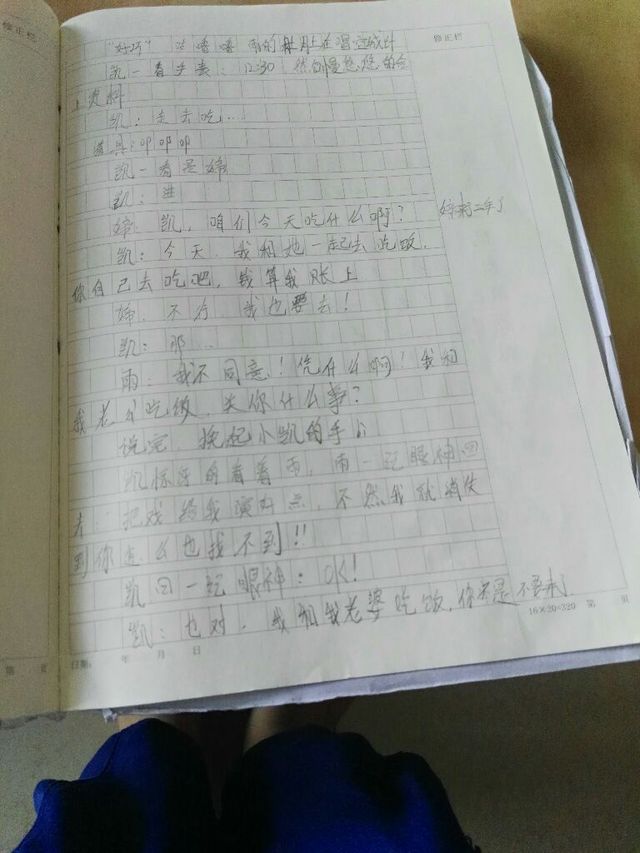 修正栏
修正栏
"好巧" 咕噜噜 雨的肚子在唱空城计
凯一看手表:12:30 然后慢悠悠的合
上资料
凯:走去吃...
道具:叩叩叩
凯一看是婷
凯:进
婷:凯,咱们今天吃什么啊?
婷来二年了
凯:今天,我和她一起去吃饭,
你自己去吃吧,钱算我账上
婷:不行 我也要去!
凯:那...
雨:我不同意!凭什么啊!我和
我老公吃饭,关你什么事?
说完,挽起小凯的手
凯惊讶的看着雨,雨一记眼神回
去:把戏给我演好点,不然我就消失
到你怎么也找不到!!
凯回一记眼神:OK!
凯:也对,我和我老婆吃饭,你还是不要来
16×20=320 第 页
第 页
日期: 年 月 日